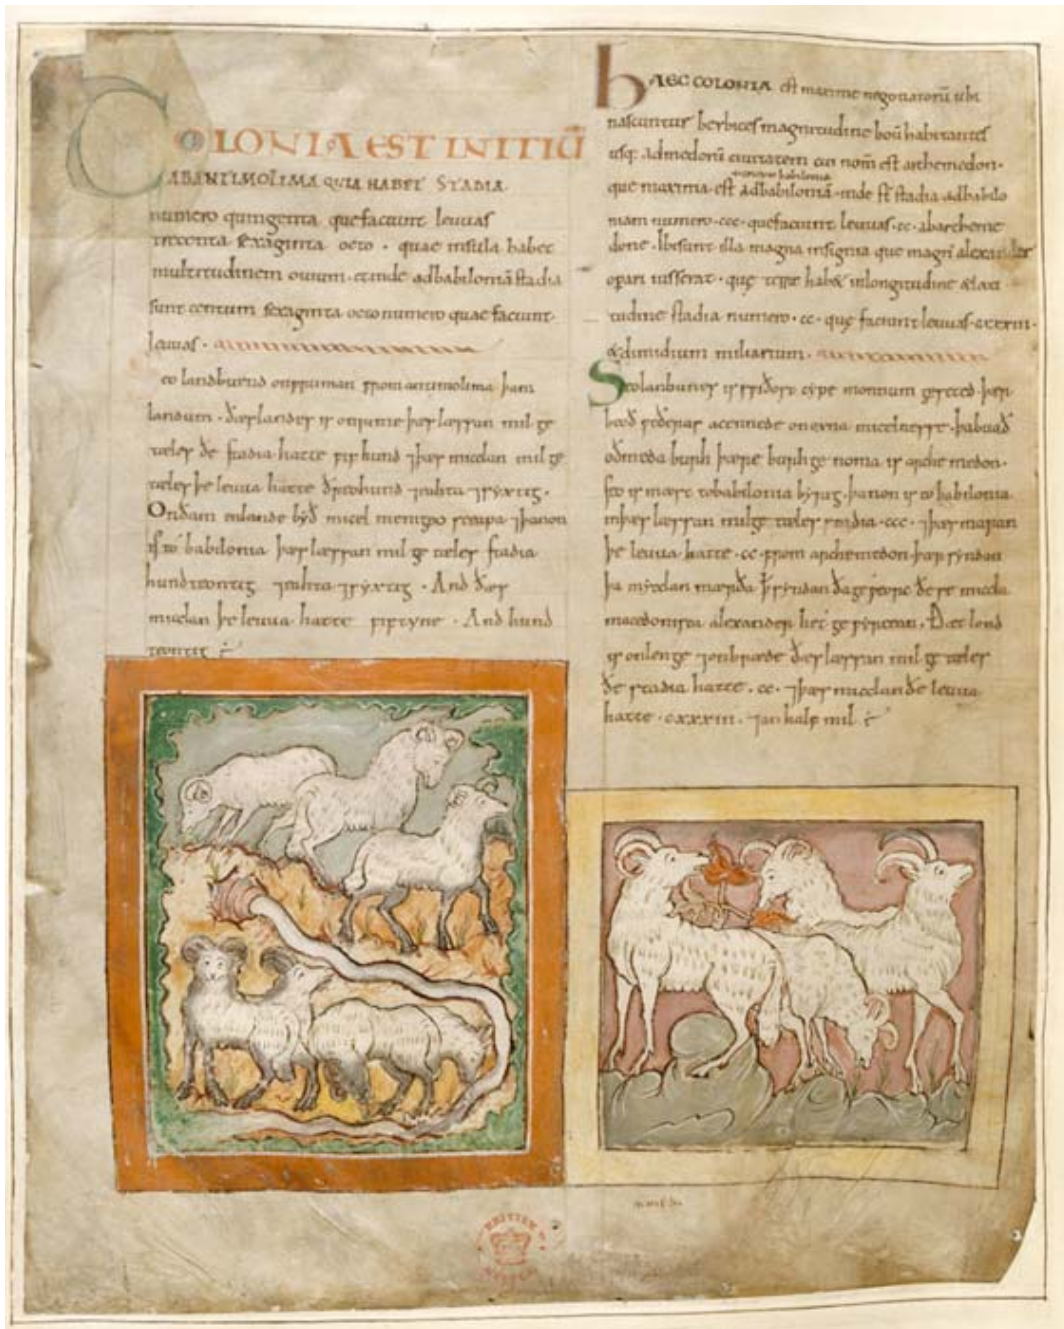 COLONIA EST INITIŪ
ABANTIMOLIMA QUIA HABET STADIA
numero quingenta que faciunt leuuas
trecenta sexaginta octo · quae insula habet
multitudinem ouium · et inde adbabiloniā stadia
sunt centum sexaginta octo numero quae faciunt
leuuas ·
eo landbuend onfruman from antimolima þam
landum · ðæs landes is onrime þæs læssan mil ge
teles ðe stadia hatte fif hund ⁊ þæs micclan mil ge
teles þe leuua hatte ðreohund ⁊ eahta ⁊ syxtig ·
Onðam ealande byð micel menigeo sceapa ⁊ þanon
is to babilonia þæs læssan mil ge teles stadia
hundteontig ⁊ eahta ⁊ syxtig · And ðæs
micclan þe leuua hatte fiftyne · And hund
teontig
hAEC COLONIA est maxime negotiatorū ubi
nascuntur berbices magnitudine boū habitantes
usq; admedorū ciuitatem cui nom̄ est archemedon ·
que maxima est adbabiloniā · inde st̄ stadia adbabilo
niam numero · ccc · que faciunt leuuas · cc · abarcheme
done · Ibi sunt illa magna insignia que magn' alexander
operari iusserat · que terre habet inlongitudine & lati
tudine stadia numero · cc · que faciunt leuuas · cxxxiii ·
& dimidium miliarium ·
Seo landbunes is swiðost cype monnum geseted · þær
beoð weðeras acennede on oxna micelnesse · þa buað
oð meda burh þære burhge noma is archemedon ·
seo is mæst to babilonia byrig · þanon is to babilonia
in þæs læssan milge teles stadia · ccc · ⁊ þæs maran
þe leuua hatte · cc · from archemedon · þær syndon
þa mycclan mærða þ syndan ða geweorc ðe se miccla
macedonisca alexander het ge wyrcean · Ðæt lond
is onlenge ⁊ on bræde ðæs læssan mil ge teles
ðe stadia hatte · cc · ⁊ þæs micclan ðe leuua
hatte · cxxxiii · ⁊ an half mil